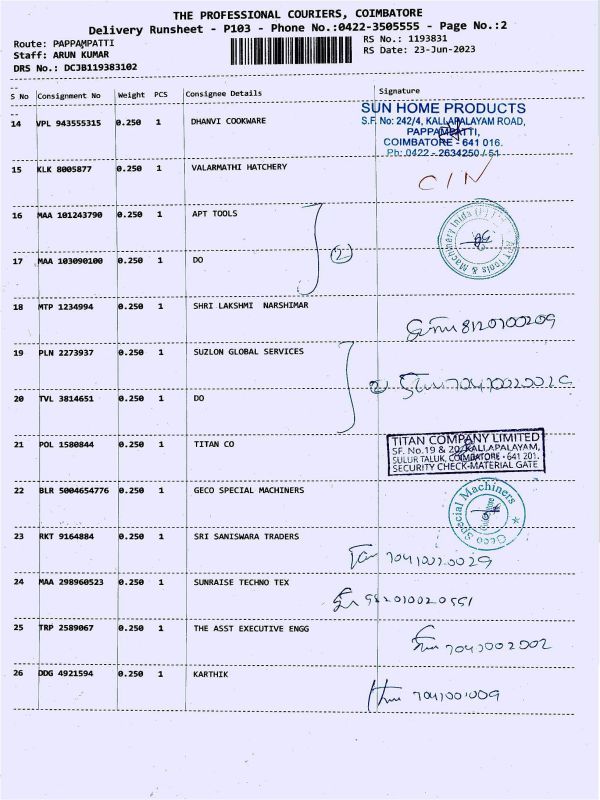 THE PROFESSIONAL COURIERS, COIMBATORE
Delivery Runsheet - P103 - Phone No.:0422-3505555 - Page No.:2
Route: PAPPAMPATTI
RS No.: 1193831
Staff: ARUN KUMAR
RS Date: 23-Jun-2023
DRS No.: DCJB119383102
S No Consignment No Weight PCS Consignee Details Signature
14 VPL 943555315 0.250 1 DHANVI COOKWARE
SUN HOME PRODUCTS
S.F. No: 242/4, KALLAPALAYAM ROAD,
PAPPAMPATTI,
COIMBATORE - 641 016.
Ph: 0422 - 2634250 / 51
15 KLK 8005877 0.250 1 VALARMATHI HATCHERY
C/N
16 MAA 101243790 0.250 1 APT TOOLS
17 MAA 103090100 0.250 1 DO
2
APT Tools & Machinery India (P)
18 MTP 1234994 0.250 1 SHRI LAKSHMI NARSHIMAR
8120700209
19 PLN 2273937 0.250 1 SUZLON GLOBAL SERVICES
2
20 TVL 3814651 0.250 1 DO
21 POL 1580844 0.250 1 TITAN CO
TITAN COMPANY LIMITED
SF. No.19 & 20, KALLAPALAYAM,
SULUR TALUK, COIMBATORE - 641 201.
SECURITY CHECK-MATERIAL GATE
22 BLR 5004654776 0.250 1 GECO SPECIAL MACHINERS
Geco Special Machiners
23 RKT 9164884 0.250 1 SRI SANISWARA TRADERS
24 MAA 298960523 0.250 1 SUNRAISE TECHNO TEX
25 TRP 2589067 0.250 1 THE ASST EXECUTIVE ENGG
26 DDG 4921594 0.250 1 KARTHIK